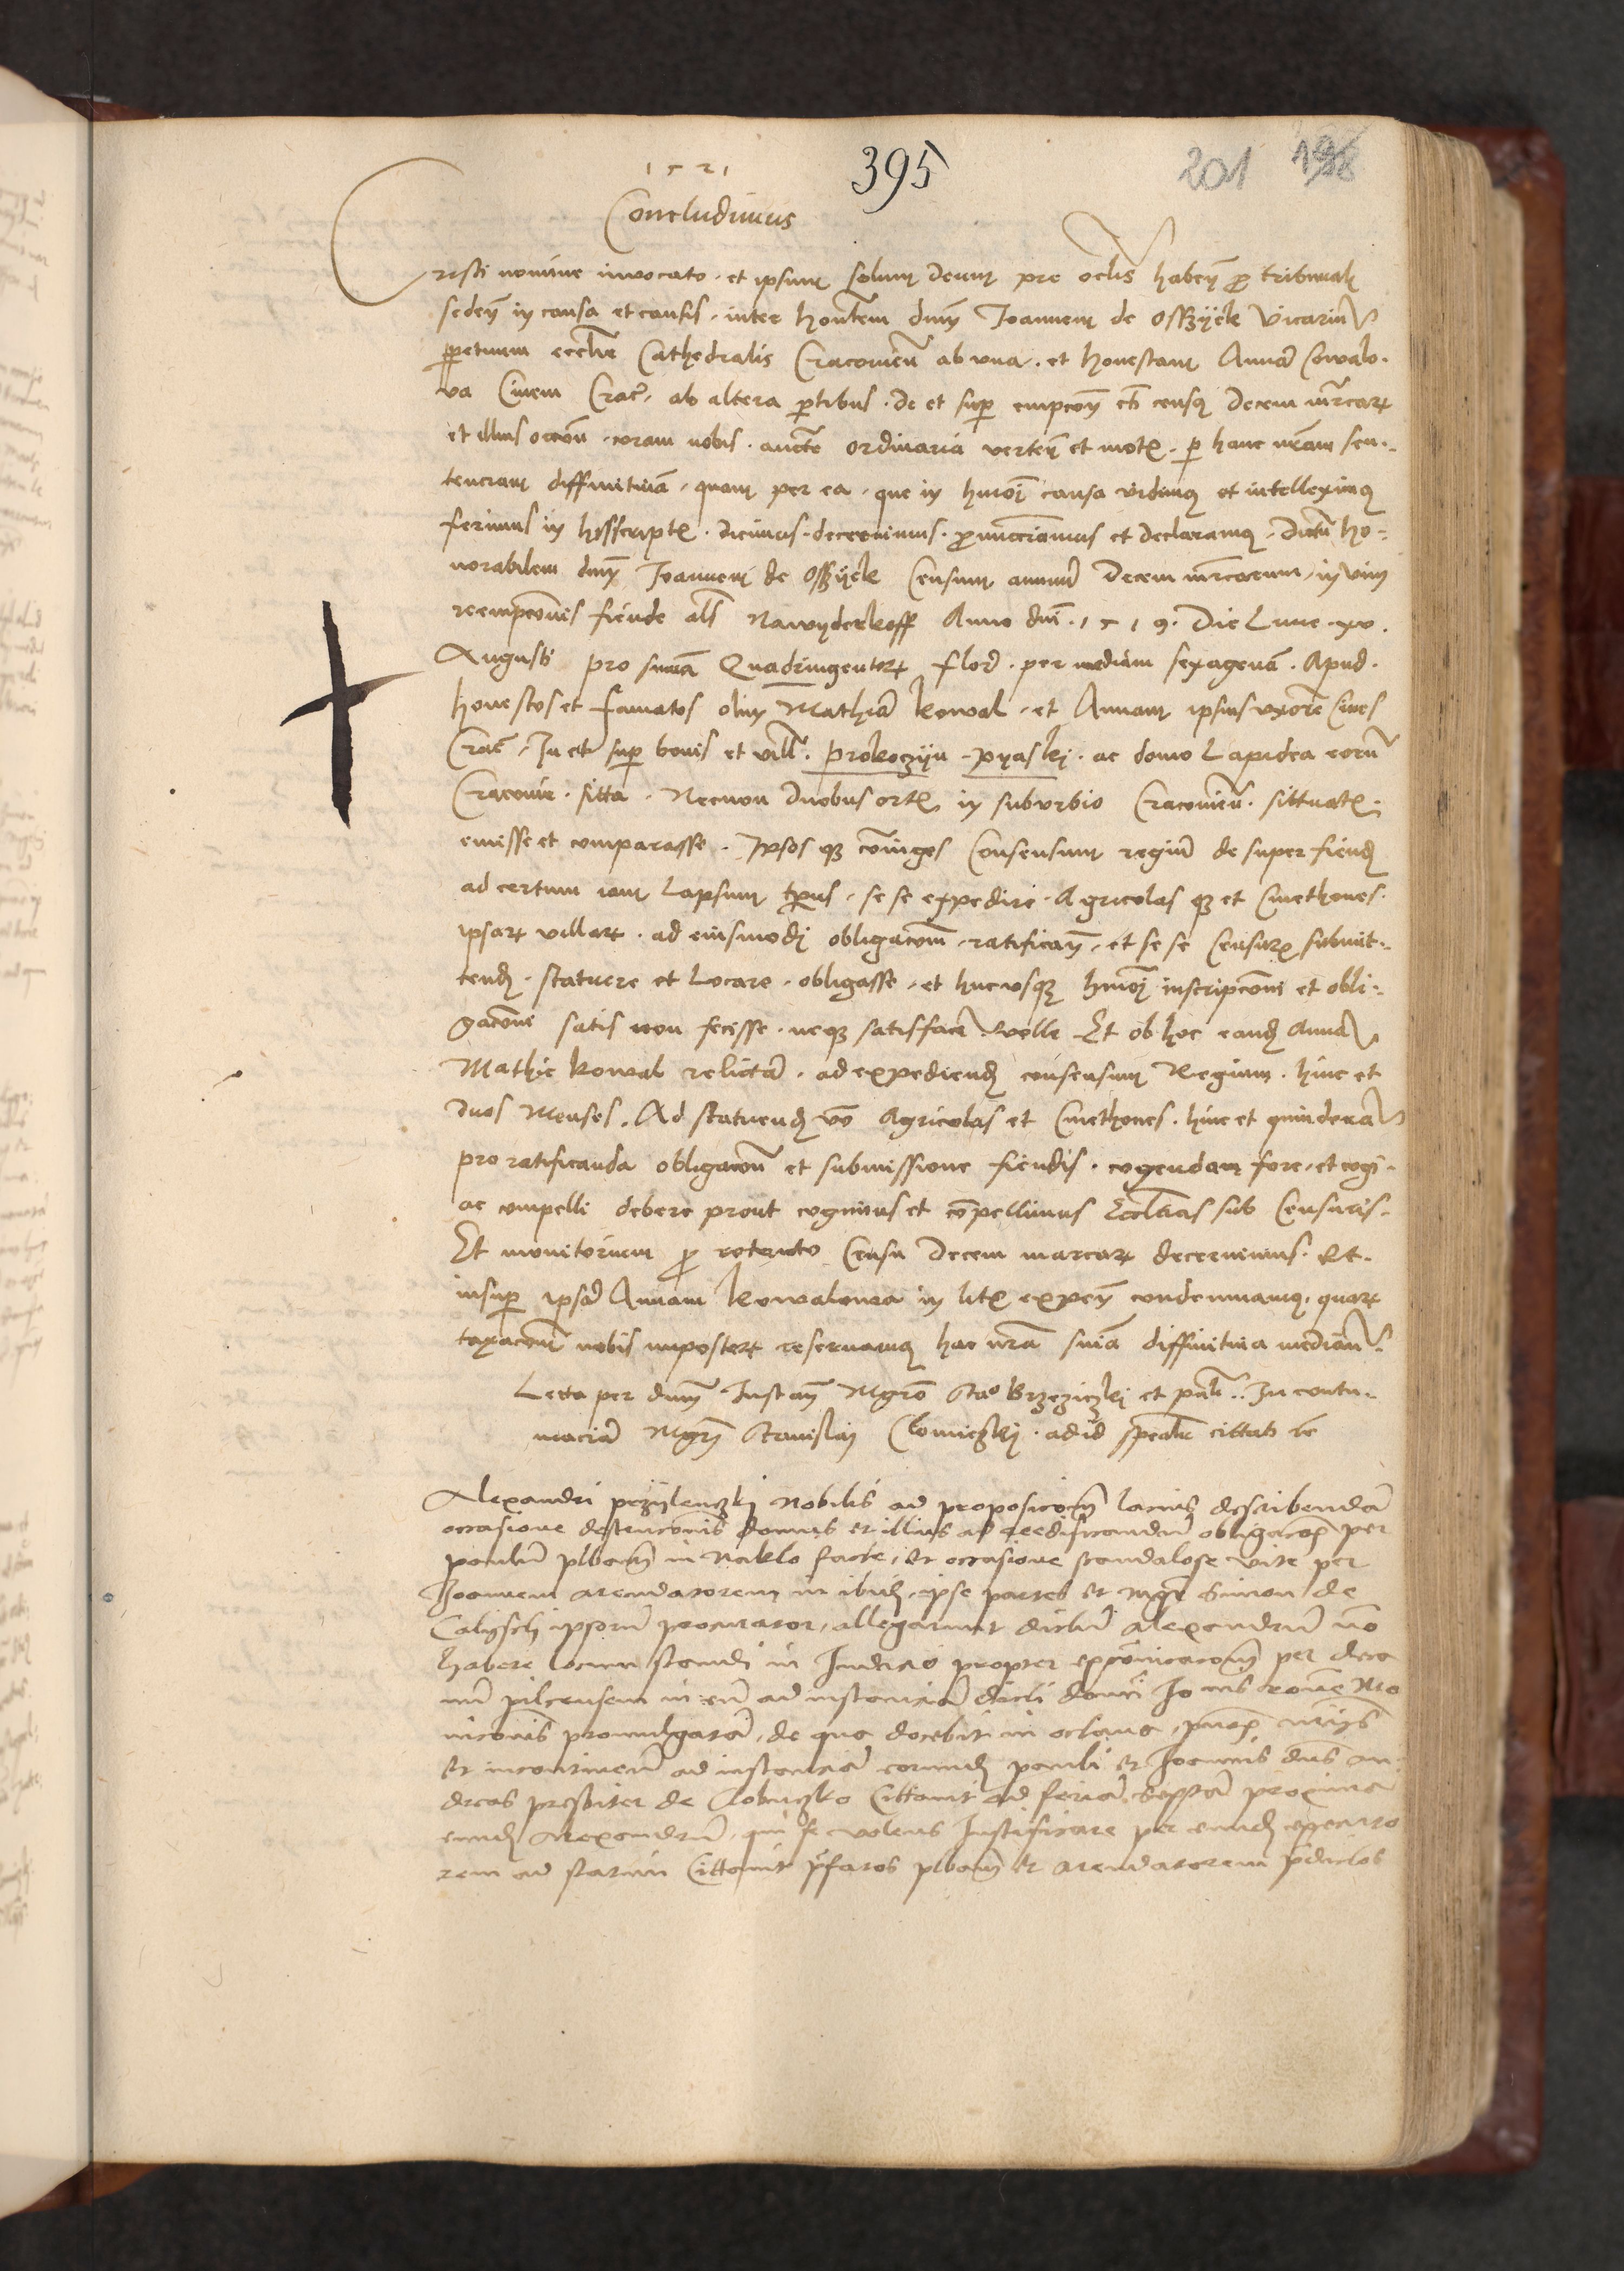 1521
395
201 198
Concludimus
Cristi nomine invocato et ipsum solum deum pre oclis haben pro tribunali
seden in causa et causis inter honlem dnm Joannem de Osszyek Vicariu
perpetuum ecclie Cathedralis Cracovien ab una et honestam Anna Cowalo
va Civem Crac ab altera partibus de et super empcon census decem mrcar
et illius occon coram nobis aucte ordinaria verten et mot per hanc nram sen
tenciam diffinitiva quam per ea que in hmoi causa vidimus et intelleximus
ferimus in hisscriptis dicimus decernimus pronuncciamus et declaramus dictu ho
norabilem dnm Joannem de Osszyek Censum annuu decem mrcarum in vim
reempcionis fiende als Nawyderkoff Anno dni 1519 Die Lune xv
Augusti pro suma Quadringentor flor per mediam sexagena Apud
honestos et famatos olim Mathia Kowal et Annam ipsius uxore Cives
Crac In et super bonis et vill Prokoczyn pyasky ac domo Lapidea eoru
Cracovie sitta Necnon duobus ortis in suburbio Cracovien sittuatis
emisse et comparasse Ipsos que coniuges Consensum regiu de super fiend
ad certum iam lapsum tpus se se expedire Agricolas que et Cmethones
ipsar villar ad eiusmodi obligacom ratifican et se se censuris submit
tend statuere et Locare obligasse et hucusque hmoi inscripcom et obli
gacone satis non fecisse neque satisfacere velle Et ob hoc eand Anna
Mathie Kowal relicta ad expediend consensum Regium hinc et
duos Menses Ad statuend vo Agricolas et Cmethones hinc et quindena
pro ratificanda obligacon et submissione fiendis cogendam fore et cogi
ac compelli debere prout cogimus et compellimus Ecclicas sub Censuris
Et monitorium pro retento Censu decem marcar decernimus Et
insuper ipsa Annam Kowalowa in litis expen condemnamus quar
taxacom nobis imposter reservamus hac nra snia diffinitiva median
Lecta per dnm Instan Mgro Sta Brzeziczky et pnti In contu
macia Mgri Stanislai Clomiczky ad id spealr cittati
Alexandri przylenczky Nobilis ad proposicom lacius describenda
occasione destruccionis domus et illius ad reedificandu obligacois per
paulu plbanu in Naklo facte et occasione scandalose vite per
Joannem arendatorem in ibid ipse partes et Mgr Simon de
Calisch ipsoru procurator allegarunt dictu Alexandru no
habere locum standi in Judicio propter excoicacom per deca
nu pilcensem in eu ad instancia dicti domi
promulgata de qua docebit in octava
et incontinen ad instancia eorund pauli et Joannis dns an
dreas presbiter de Clobuczko Cittavit ad feria sexta proxima
eund Alexandru qui se volens Justificare per eund executo
rem ad statim Cittavit pfatos plbanu et arendatorem pdictos